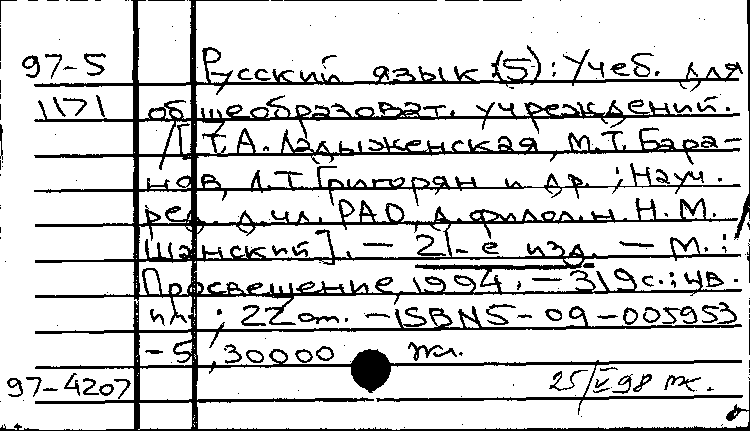 97-5 Русский язык (5): Учеб. для
1171 общеобразоват. учреждений.
/[Т.А. Ладыженская, М.Т. Бара-
нов, Л.Т Григорян и др. ; Науч.
ред. д.чл. РАО, д.филол.н. Н.М.
Шанский]. — 21-е изд. — М.:
Просвещение, 1994. — 319с.: цв.
ил.; 22 см. — ISBN 5-09-005953
-5, 30000
97-4207 25/V 98